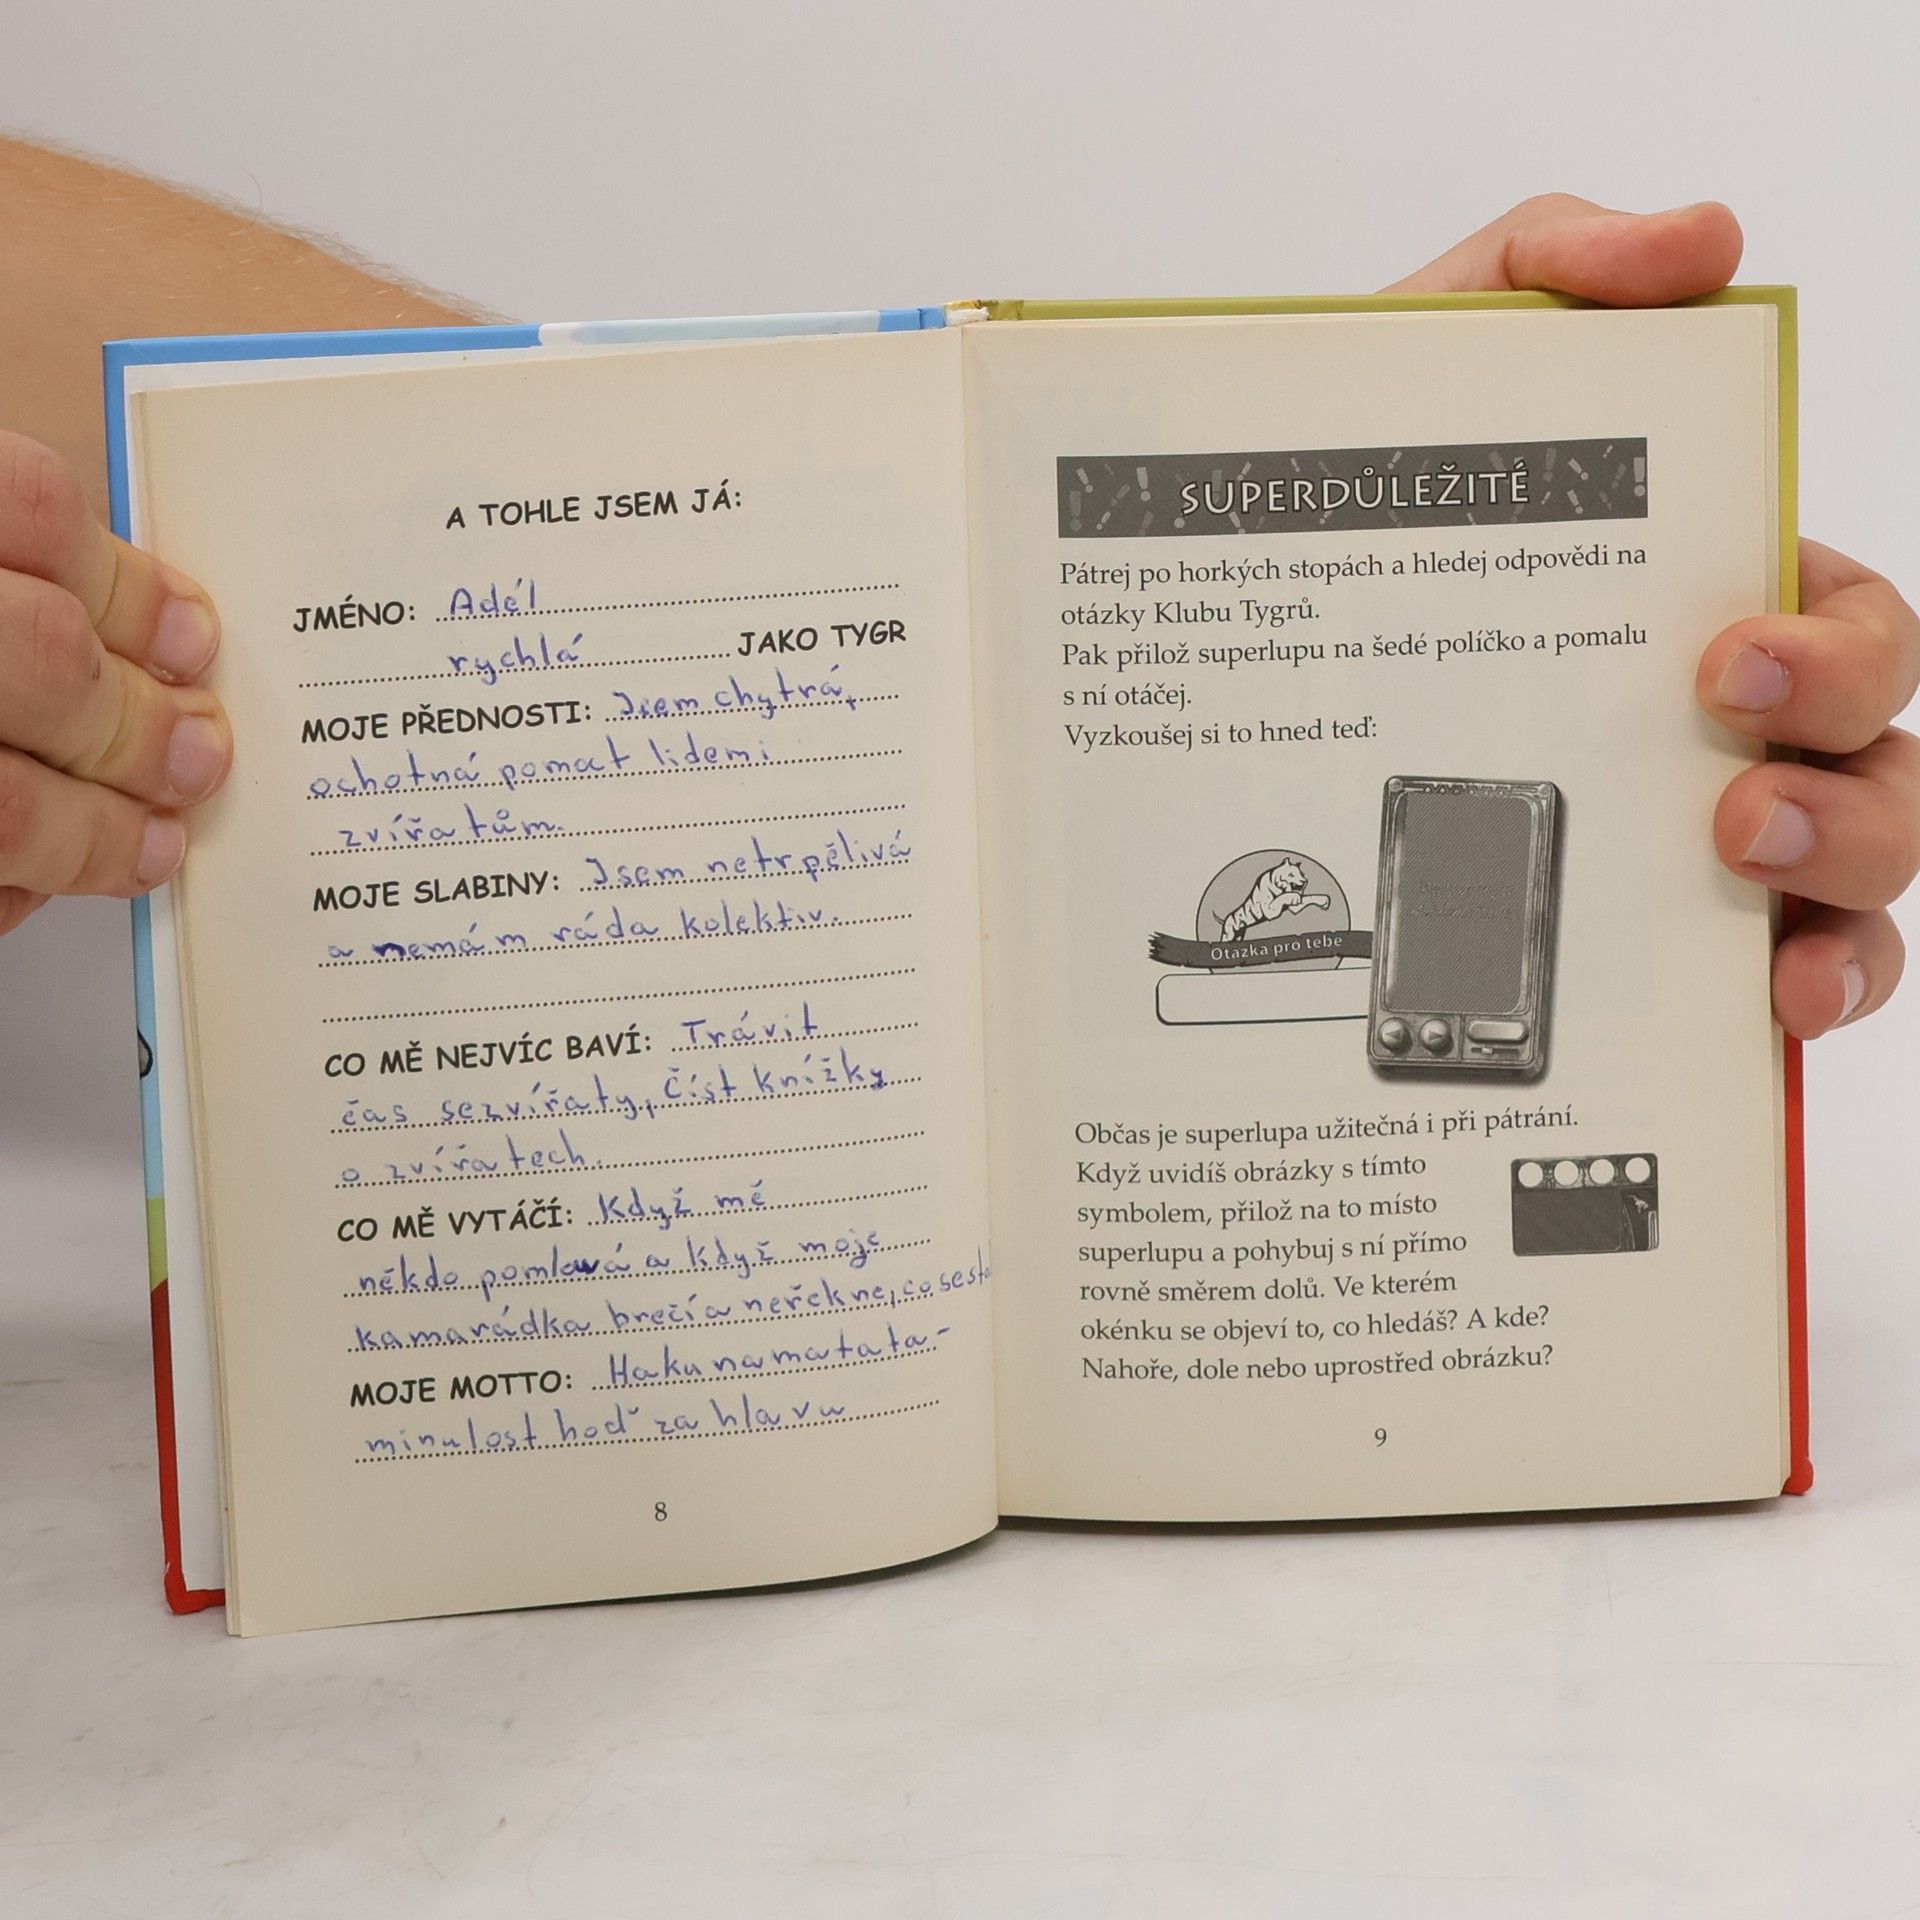 A TOHLE JSEM JÁ:
JMÉNO: Adél
rychlá JAKO TYGR
MOJE PŘEDNOSTI: Jsem chytrá,
ochotná pomoct lidem i
zvířatům.
MOJE SLABINY: Jsem netrpělivá
a nemám ráda kolektiv.
CO MĚ NEJVÍC BAVÍ: Trávit
čas se zvířaty, číst knížky
o zvířatech.
CO MĚ VYTÁČÍ: Když mě
někdo pomlouvá a když moje
kamarádka brečí a neřekne, co se sta
MOJE MOTTO: Hakuna matata-
minulost hoď za hlavu
8
SUPERDŮLEŽITÉ
Pátrej po horkých stopách a hledej odpovědi na
otázky Klubu Tygrů.
Pak přilož superlupu na šedé políčko a pomalu
s ní otáčej.
Vyzkoušej si to hned teď:
Otázka pro tebe
Občas je superlupa užitečná i při pátrání.
Když uvidíš obrázky s tímto
symbolem, přilož na to místo
superlupu a pohybuj s ní přímo
rovně směrem dolů. Ve kterém
okénku se objeví to, co hledáš? A kde?
Nahoře, dole nebo uprostřed obrázku?
9